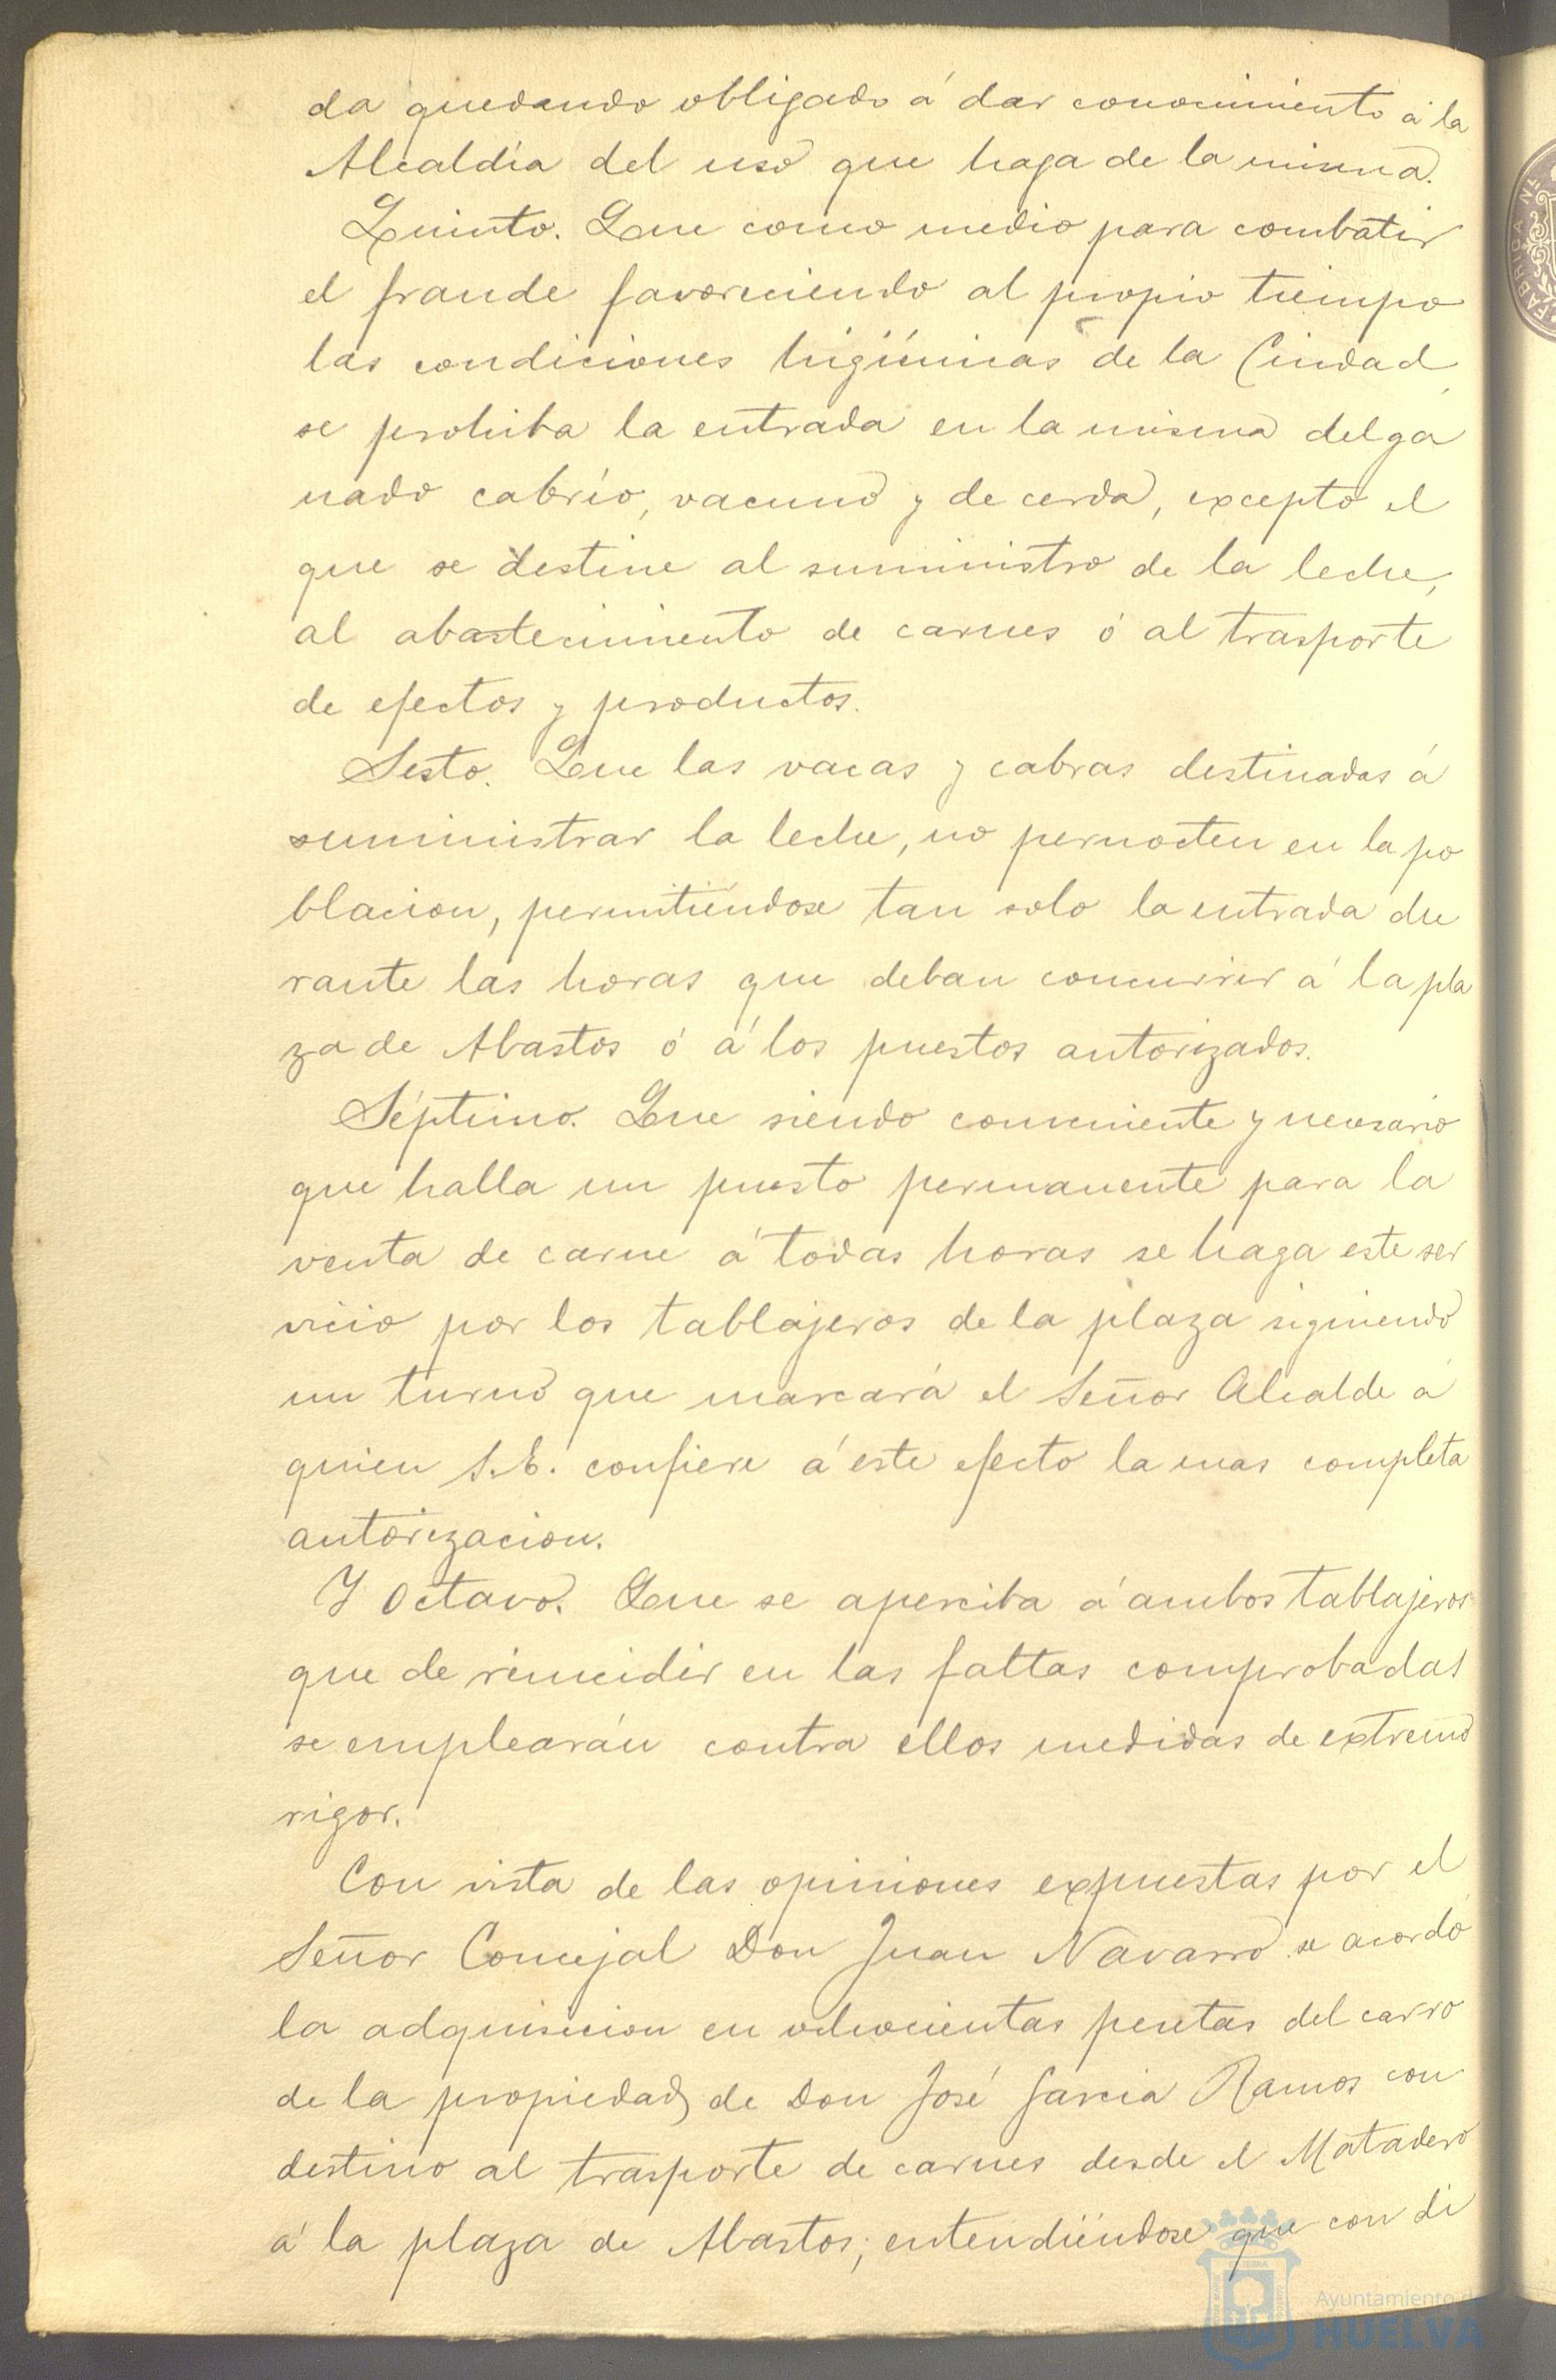 da quedando obligado á dar conocimiento á la
Alcaldía del uso que haga de la misma.
Quinto. Que como medio para combatir
el fraude favoreciendo al propio tiempo
las condiciones higiénicas de la Ciudad,
se prohiba la entrada en la misma del ga
nado cabrío, vacuno y de cerda, excepto el
que se destine al suministro de la leche,
al abastecimiento de carnes ó al trasporte
de efectos y productos.
Sesto. Que las vacas y cabras destinadas á
suministrar la leche, no pernocten en la po
blacion, permitiéndose tan solo la entrada du
rante las horas que deban concurrir á la pla
za de Abastos ó á los puestos autorizados.
Séptimo. Que siendo conveniente y necesario
que halla un puesto permanente para la
venta de carne á todas horas se haga este ser
vicio por los tablajeros de la plaza siguiendo
un turno que marcará el Señor Alcalde á
quien S.E. confiere á este efecto la mas completa
autorizacion.
Y Octavo. Que se aperciba á ambos tablajeros
que de reincidir en las faltas comprobadas
se emplearán contra ellos medidas de extremo
rigor.
Con vista de las opiniones expuestas por el
Señor Concejal Don Juan Navarro se acordó
la adquisicion en ochocientas pesetas del carro
de la propiedad de Don José Garcia Ramos con
destino al trasporte de carnes desde el Matadero
á la plaza de Abastos; entendiéndose que con di
FABRICA N
Ayuntamiento d
HUELVA